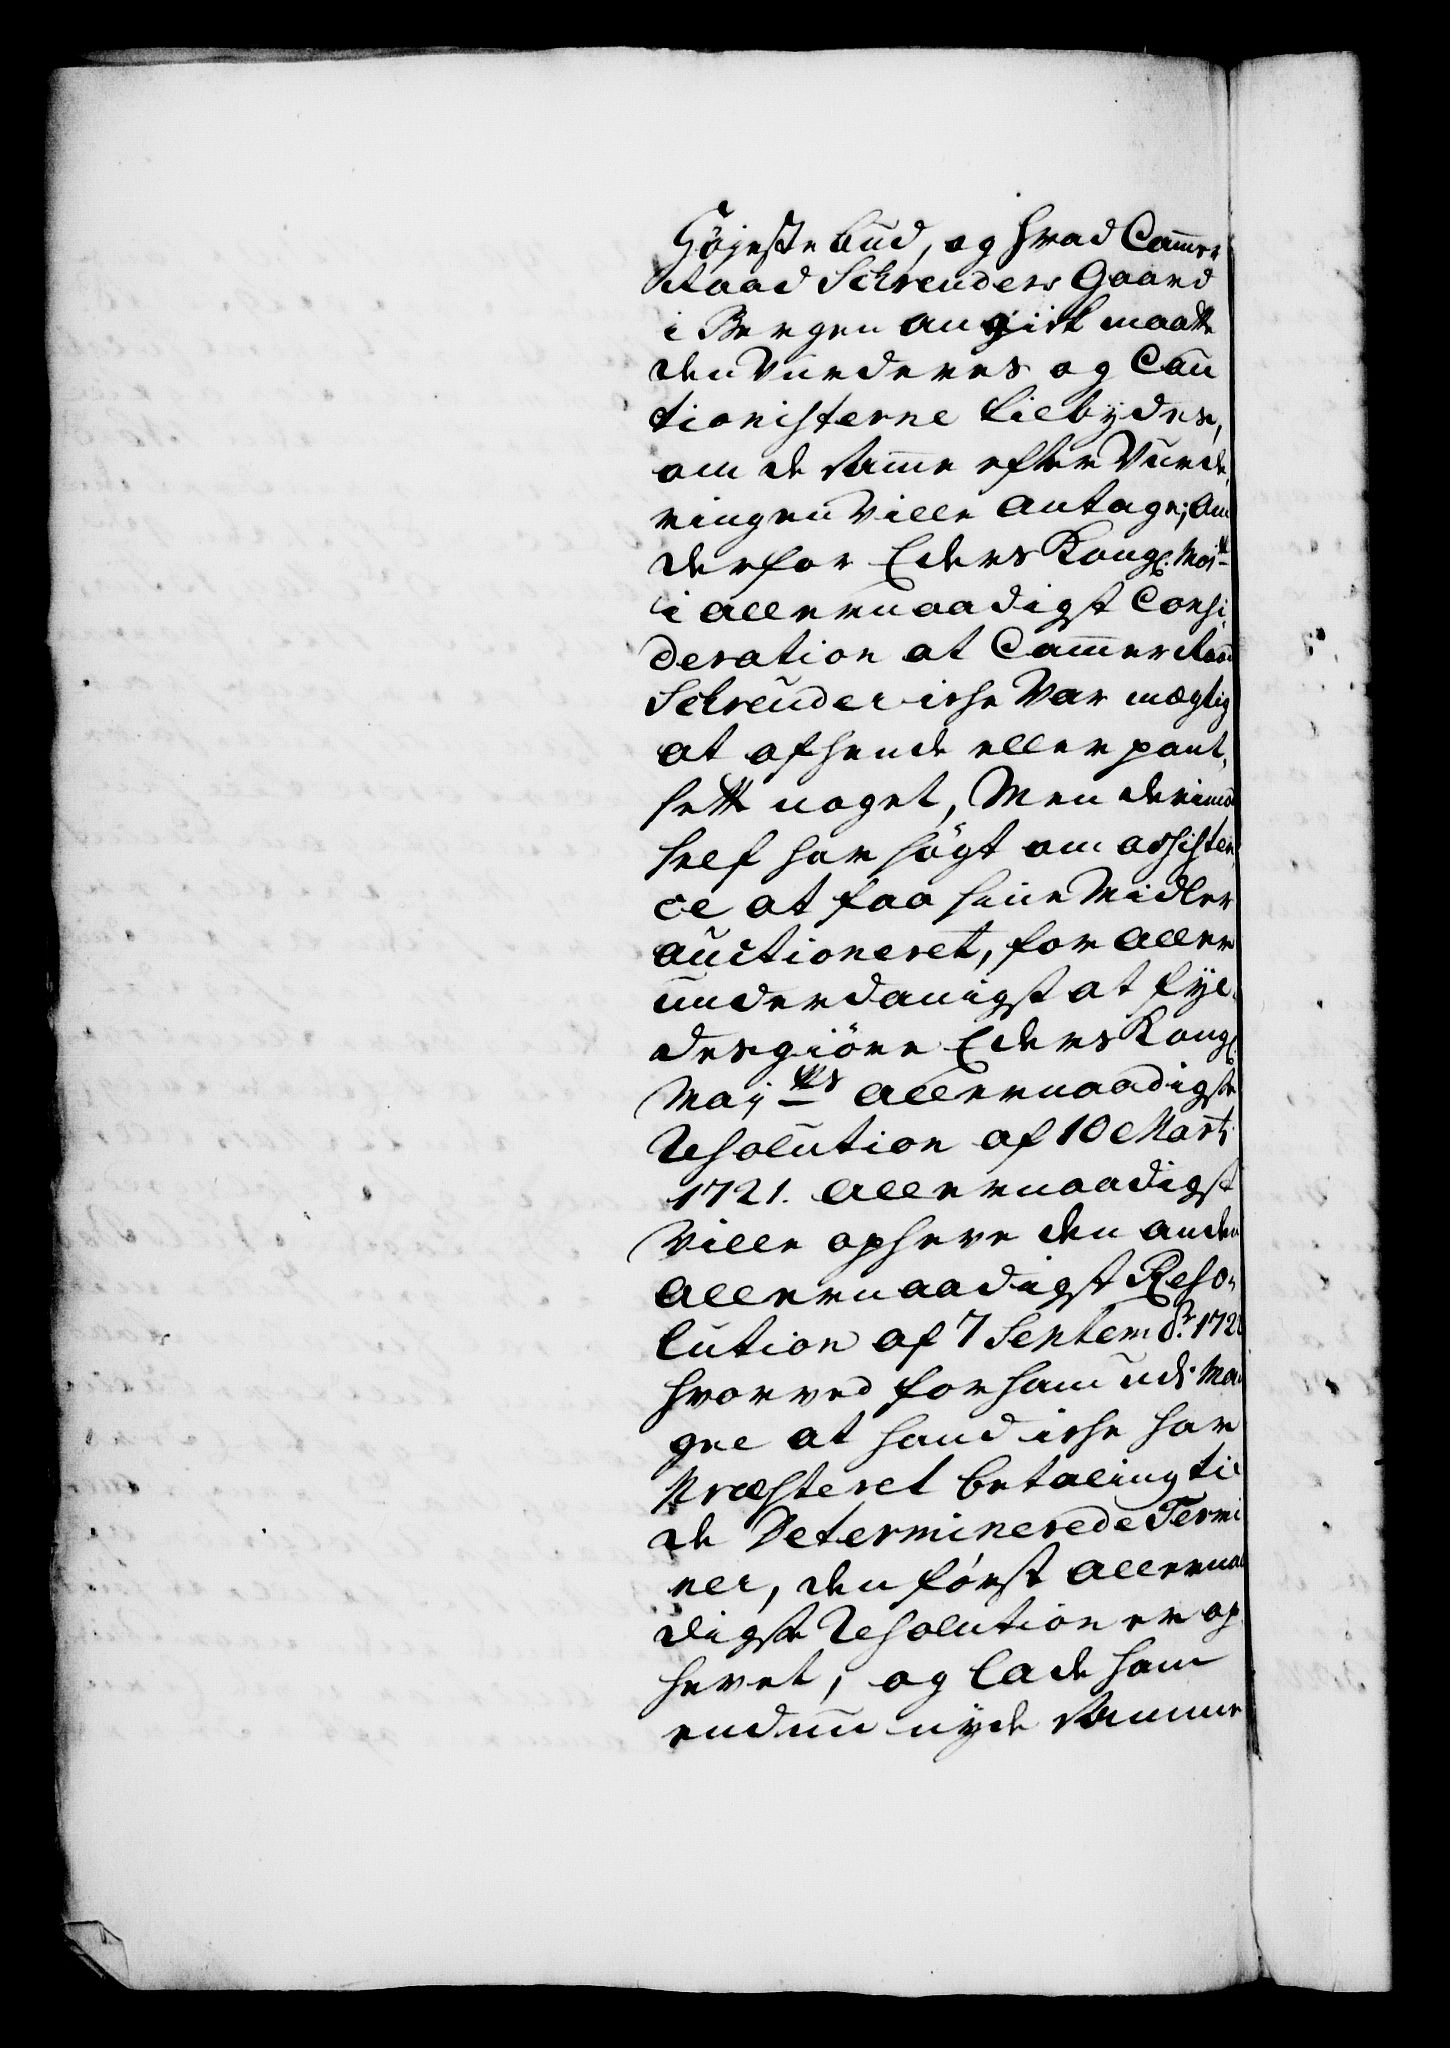 Højeste bud, og hvad Cammer
Raad Schreuders Gaard
i Bergen angiik maatte
den Vurderes og Cau
tionisterne tilbydes,
om de samme efter Vurde,
ringen Ville Antage; Om
derfor Eders Kongl. Majtt
i allernaadigst Consi,
deration at Cammer Raad
Schreuder iche Var mægtig
at afhende eller pant,
sette noget, Men derimod
self har søgt om assisten,
ce at faa sine Midler
auctioneret, for aller
underdanigst at fyl,
destgiøre Eders Kongl.
Majtts allernaadigste
Resolution af 10 Marti
1721. allernaadigst
Ville opheve den anden
allernaadigst Reso,
lution af 7 Septembr. 172
hvorved for ham udi Man
gel at hand iche har
Præsteret betaling til
de Determinerede Termi
ner, den først allernaa
digste Resolution er op
hevet, og lade ham
endnu nyde samme